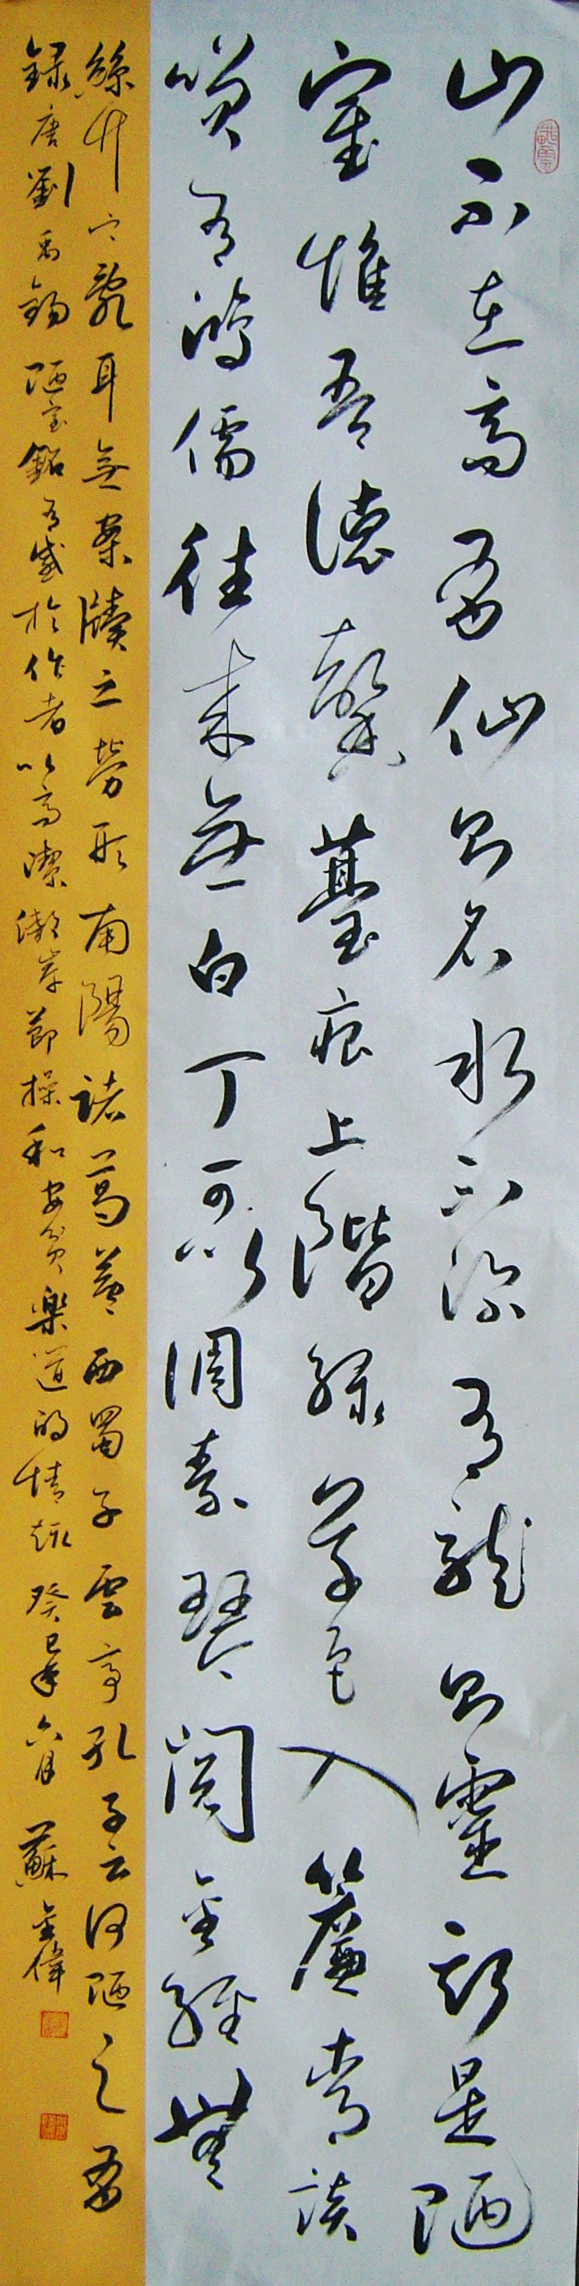 山不在高有仙則名水不深有龍則靈斯是陋
室惟吾德馨薹痕上階綠草色入簾青談
笑有鴻儒往來無白丁可以調素琴閱金經無
絲竹之亂耳無案牘之勞形南陽諸葛廬西蜀子雲亭孔子云何陋之有
錄唐劉禹錫陋室銘有感於作者以高潔傲岸節操和安貧樂道的情趣癸巳年六月蘇金偉